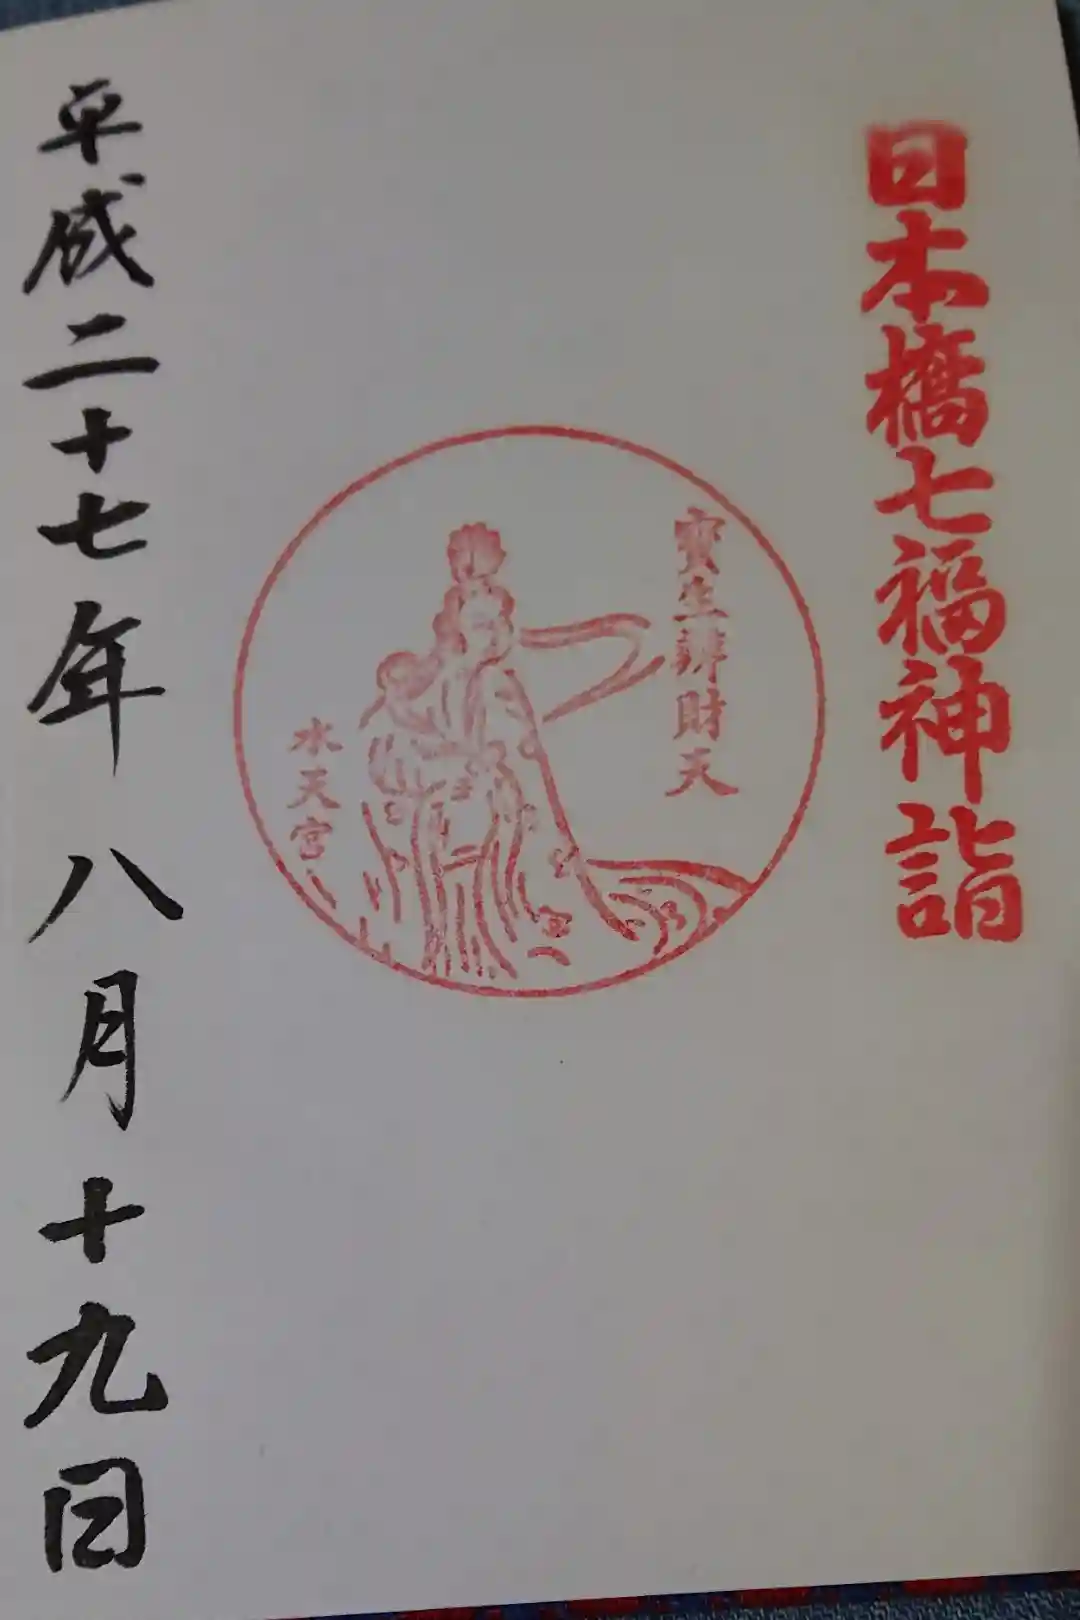 日本橋七福神詣
寳生辨財天
水天宮
平成二十七年八月十九日